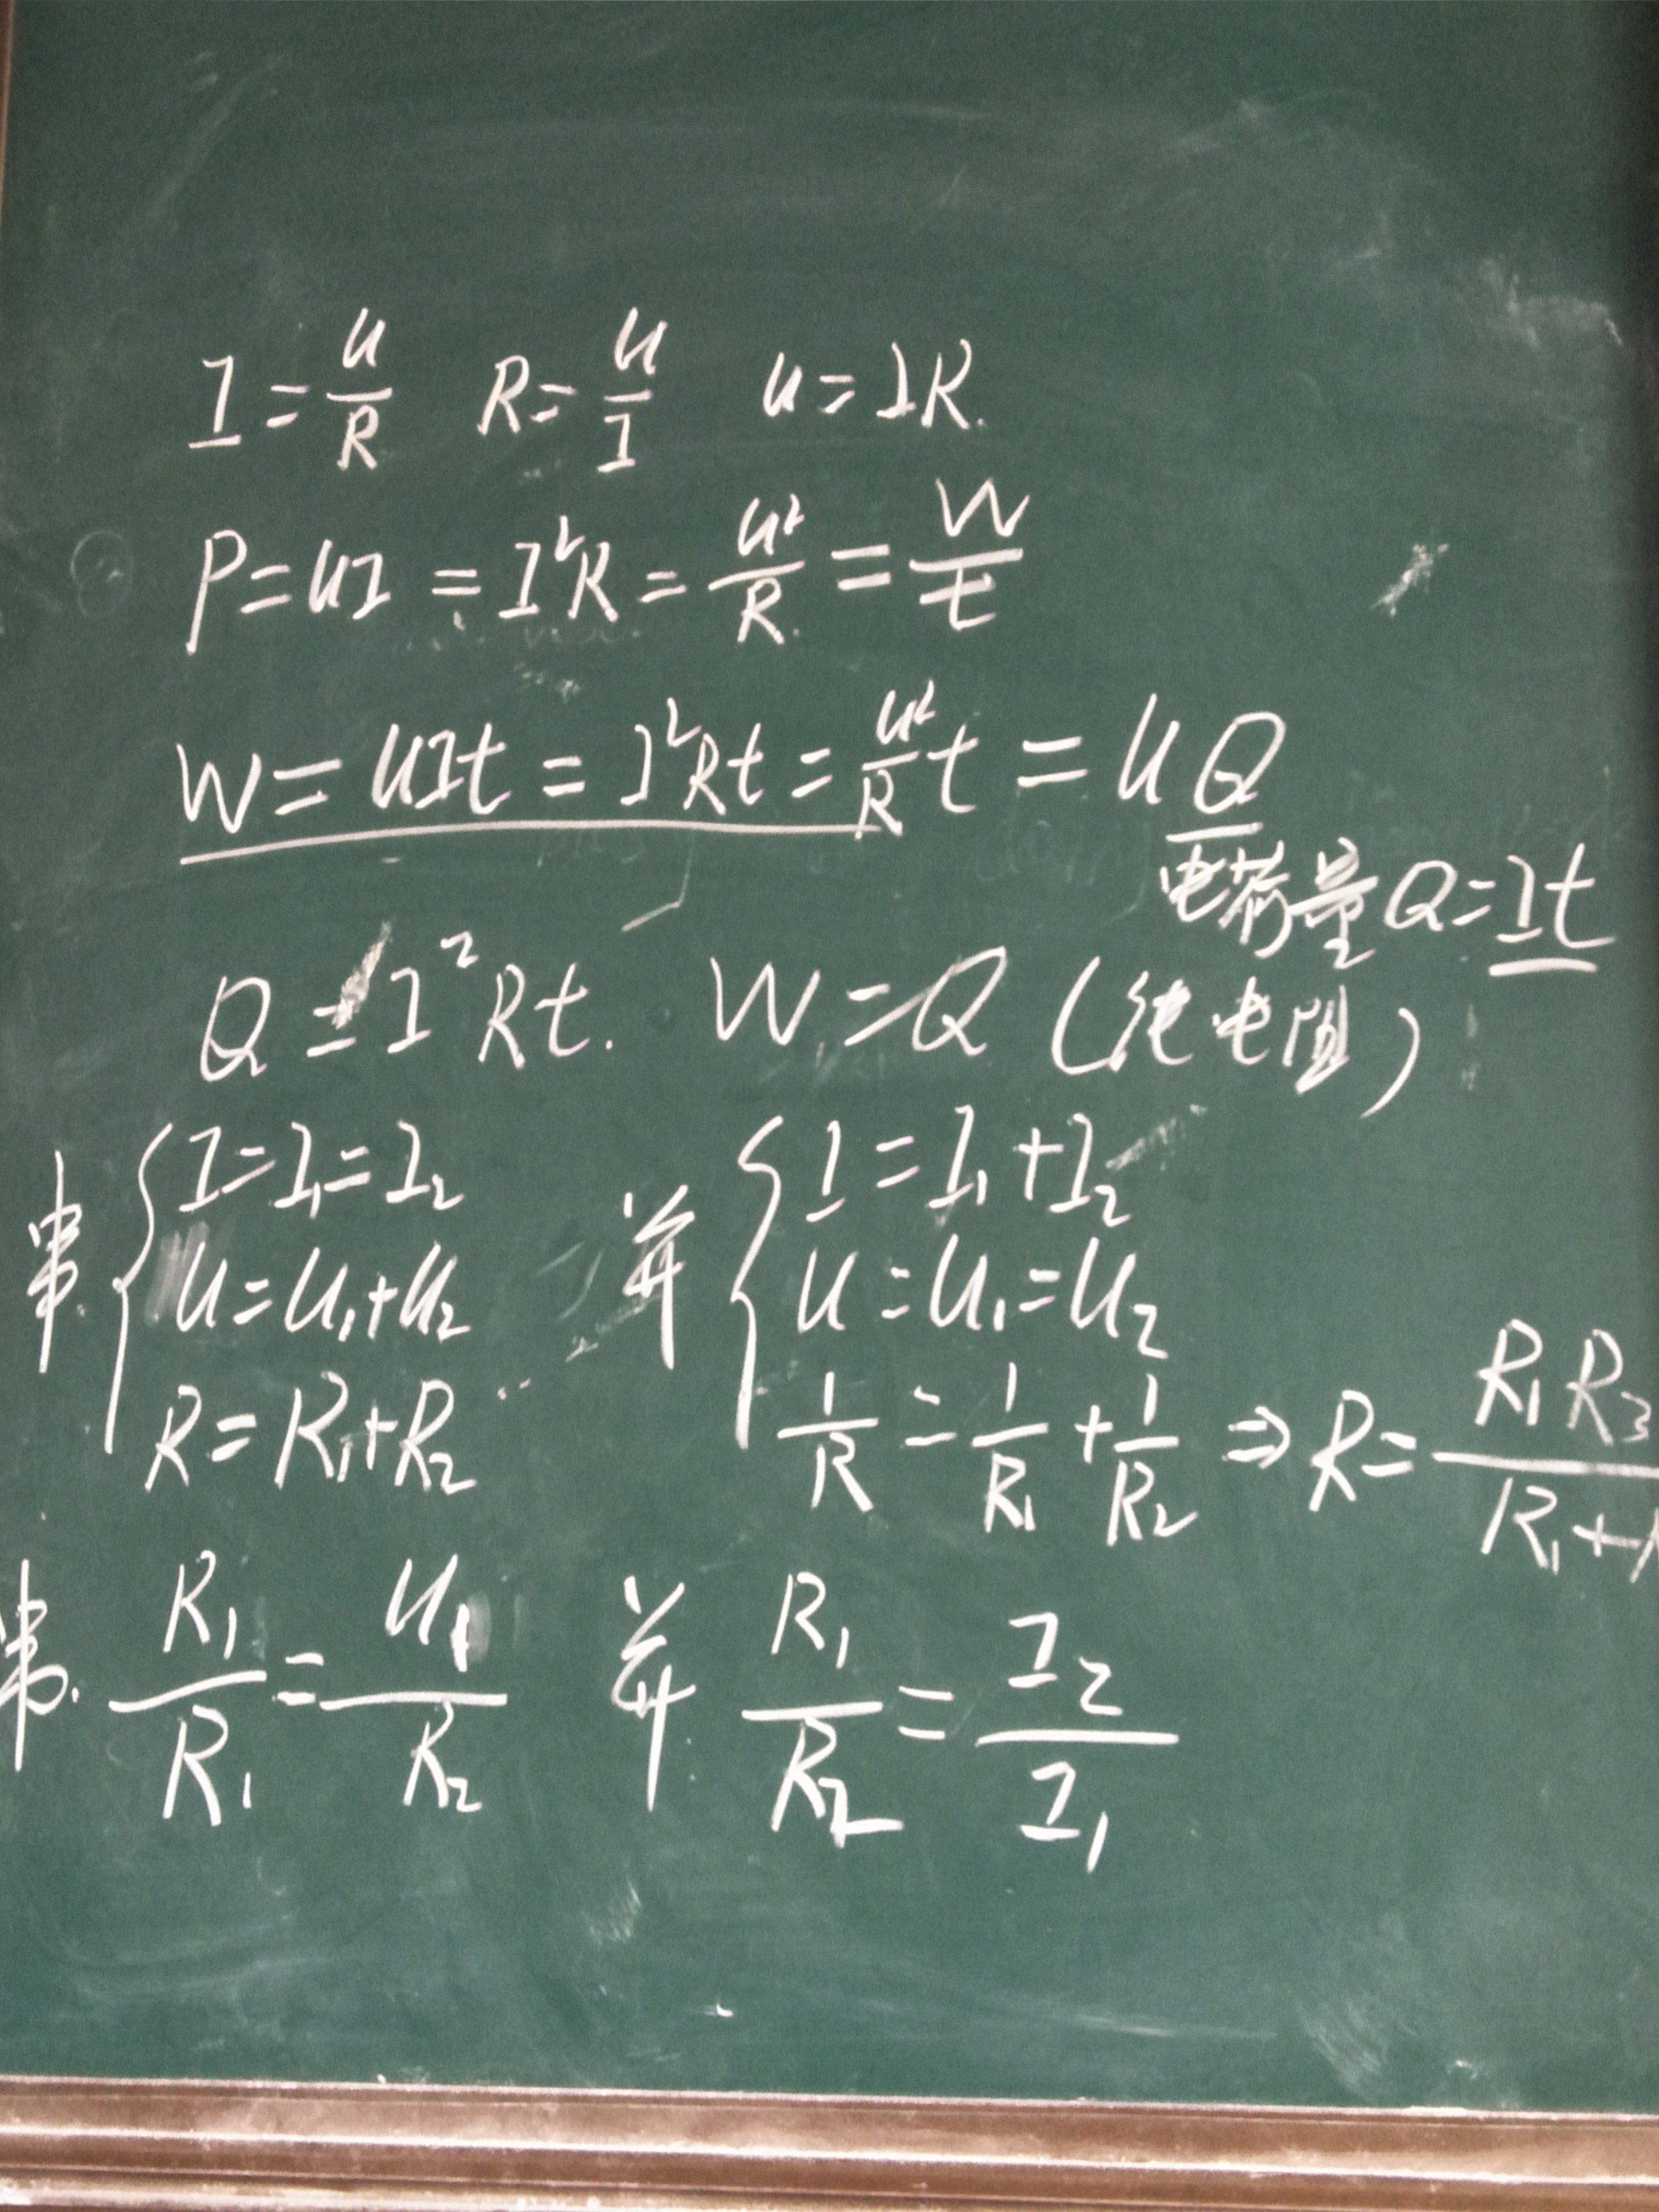 I = U/R  R = U/I  U = IR.
P = UI = I²R = U²/R = W/t
W = UIt = I²Rt = U²/R t = UQ
电荷量 Q = It
Q = I²Rt. W = Q (纯电阻)
串 { I = I₁ = I₂  并 { I = I₁ + I₂
U = U₁ + U₂  U = U₁ = U₂
R = R₁ + R₂  1/R = 1/R₁ + 1/R₂ ⇒ R = R₁R₃/R₁+
串. R₁/R₁ = U₁/R₂  并 R₁/R₂ = I₂/I₁